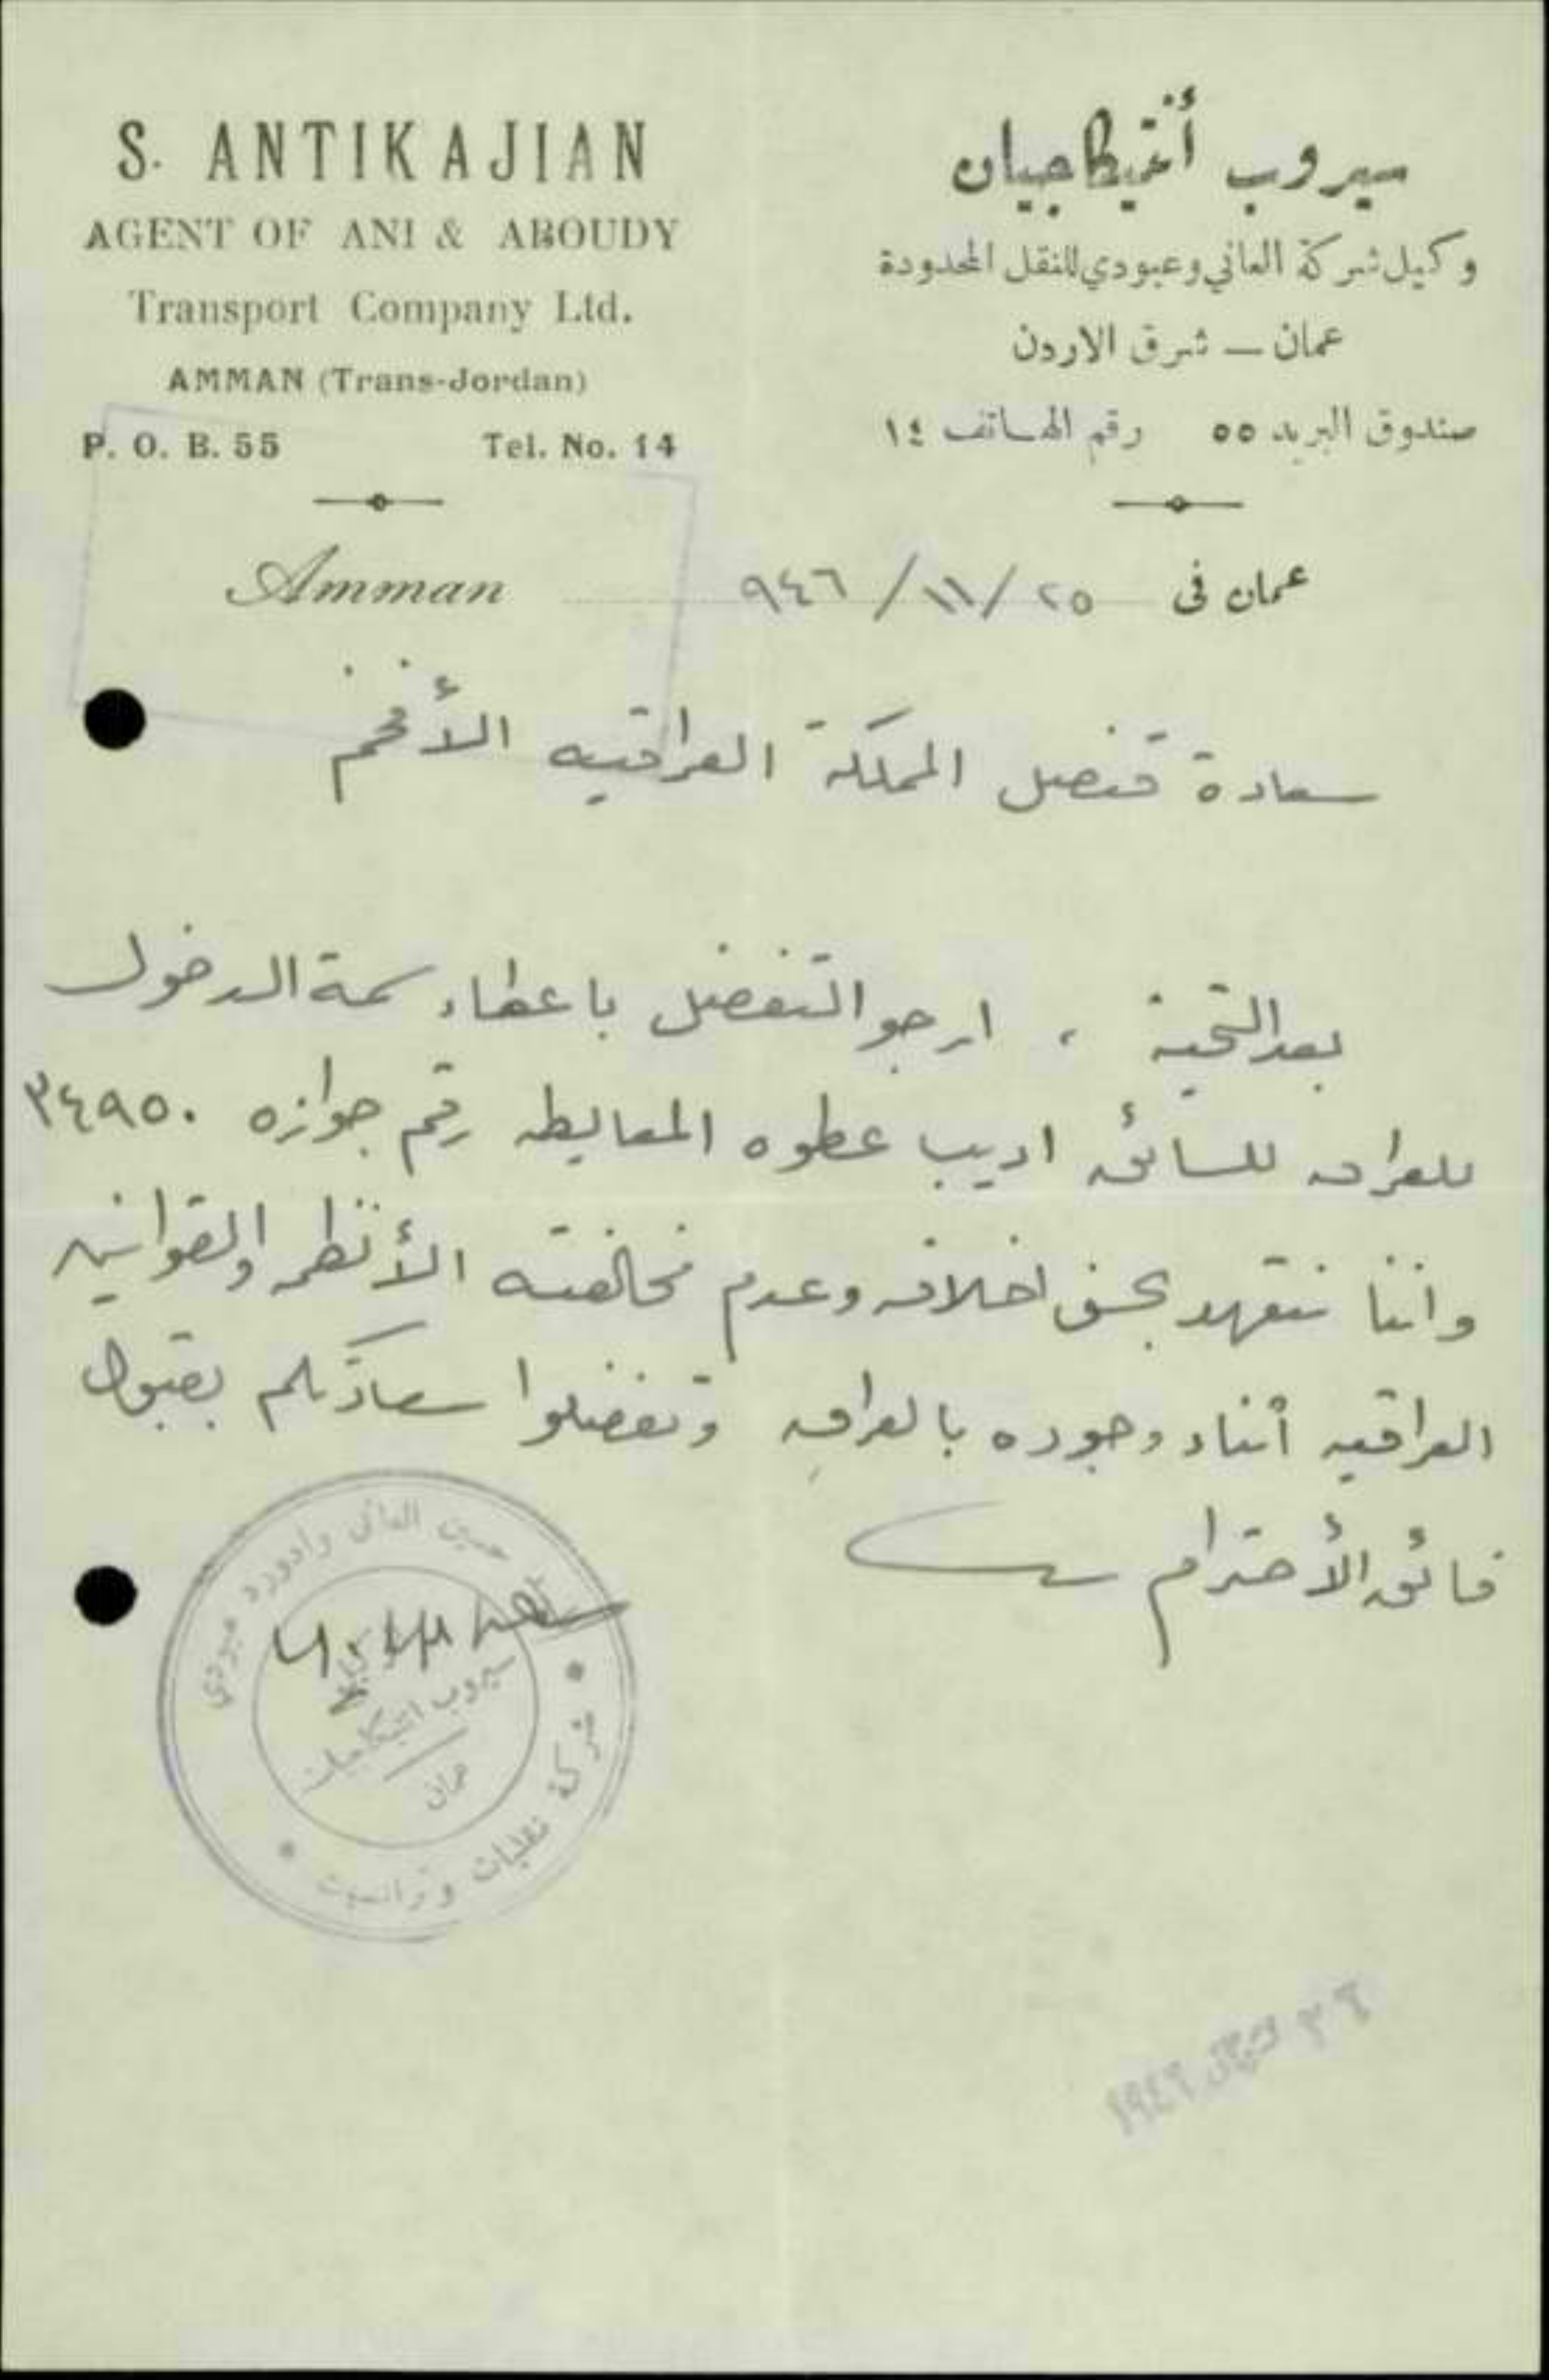 S. ANTIKAJIAN
AGENT OF ANI & ABOUDY
Transport Company Ltd.
AMMAN (Trans-Jordan)
P. O. B. 55 Tel. No. 14
سيروب أنتيكاجيان
وكيل شركة العاني وعبودي للنقل المحدودة
عمان — شرق الاردن
صندوق البريد ٥٥ رقم الهاتف ١٤
Amman
عمان في ٢٥/١١/٩٤٦
سعادة قنصل المملكة العراقيه الأفخم
بعد التحية ، ارجو التفضل باعطاء سمة الدخول
للعراق للسائق اديب عطوه المعايطه رقم جوازه ٣٤٩٥٠
واننا نتعهد بحسن اخلاقه وعدم مخالفته الأنظمه والقوانين
العراقيه أثناء وجوده بالعراق وتفضلوا سعادتكم بقبول
فائق الأحترام
حسين العاني وادورد عبودي
شركة نقليات وترانسيت
سيروب انتيكاجيان
عمان